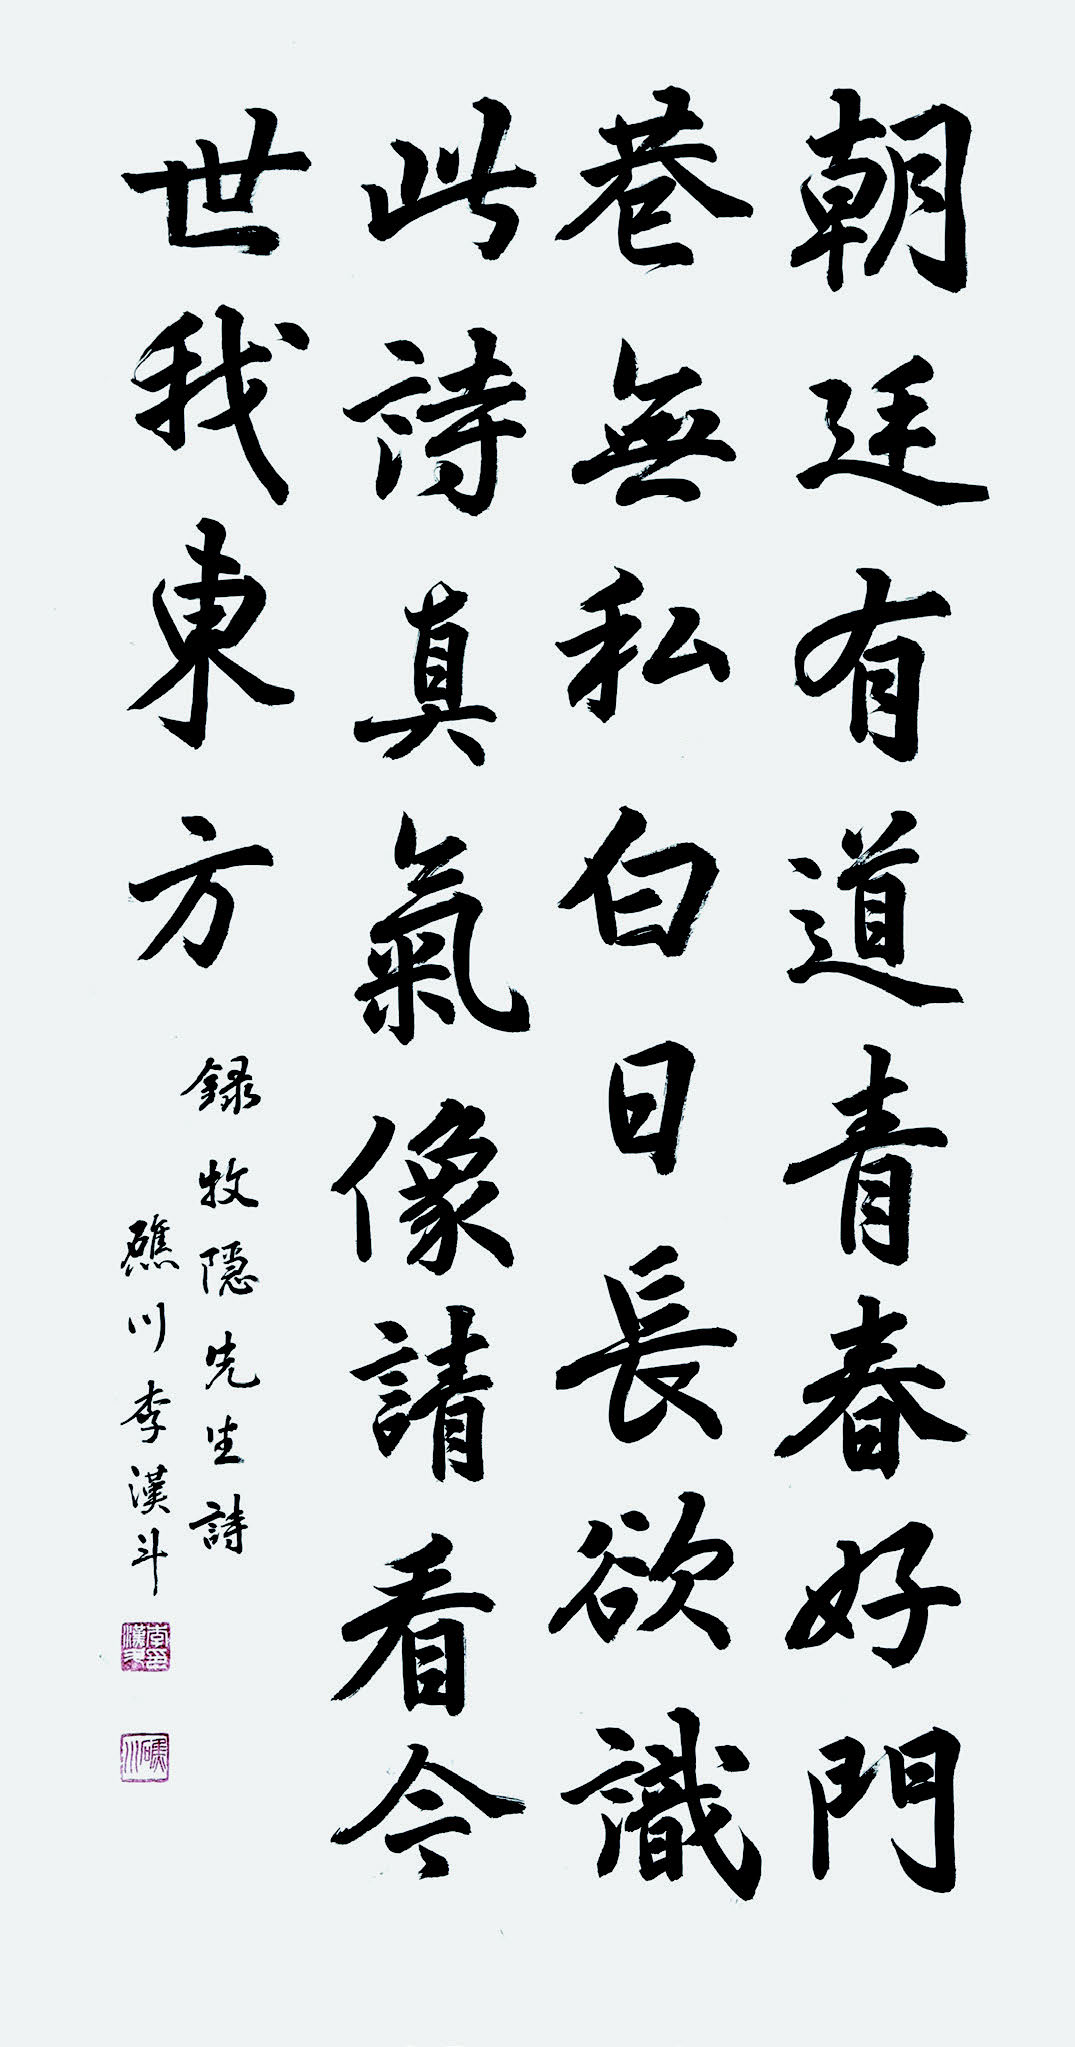 朝廷有道青春好門
巷無私白日長欲識
此詩真氣像請看今
世我東方
録牧隠先生詩
礁川李漢斗
李漢斗印
礁川